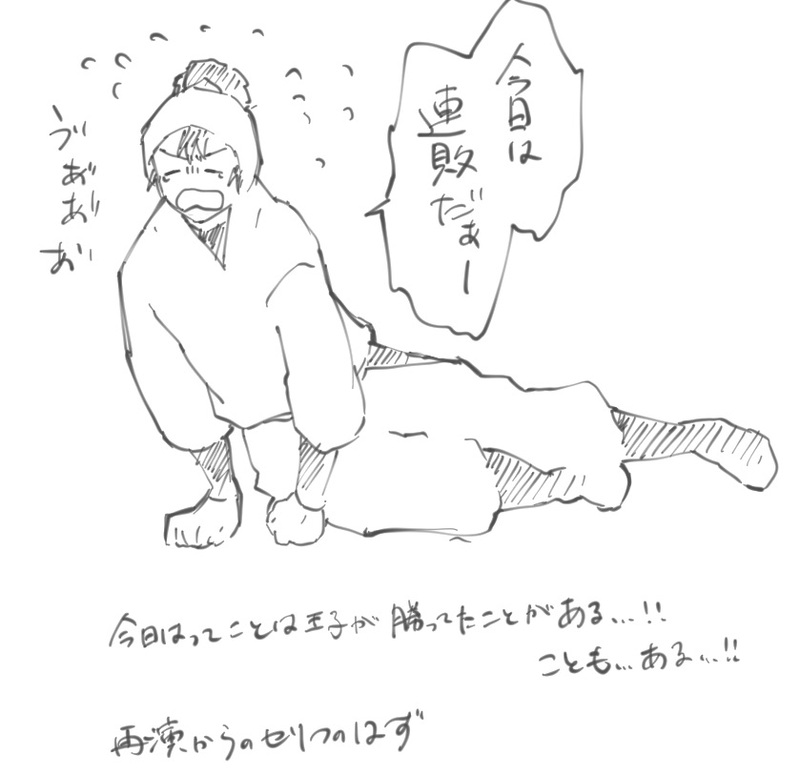 今日は
連敗だぁー
う゛ぁ゛ぁ゛ぁ゛
今日はってことは王子が勝ってたことがある…!!
ことも…ある…!!
再演からのセリフのはず